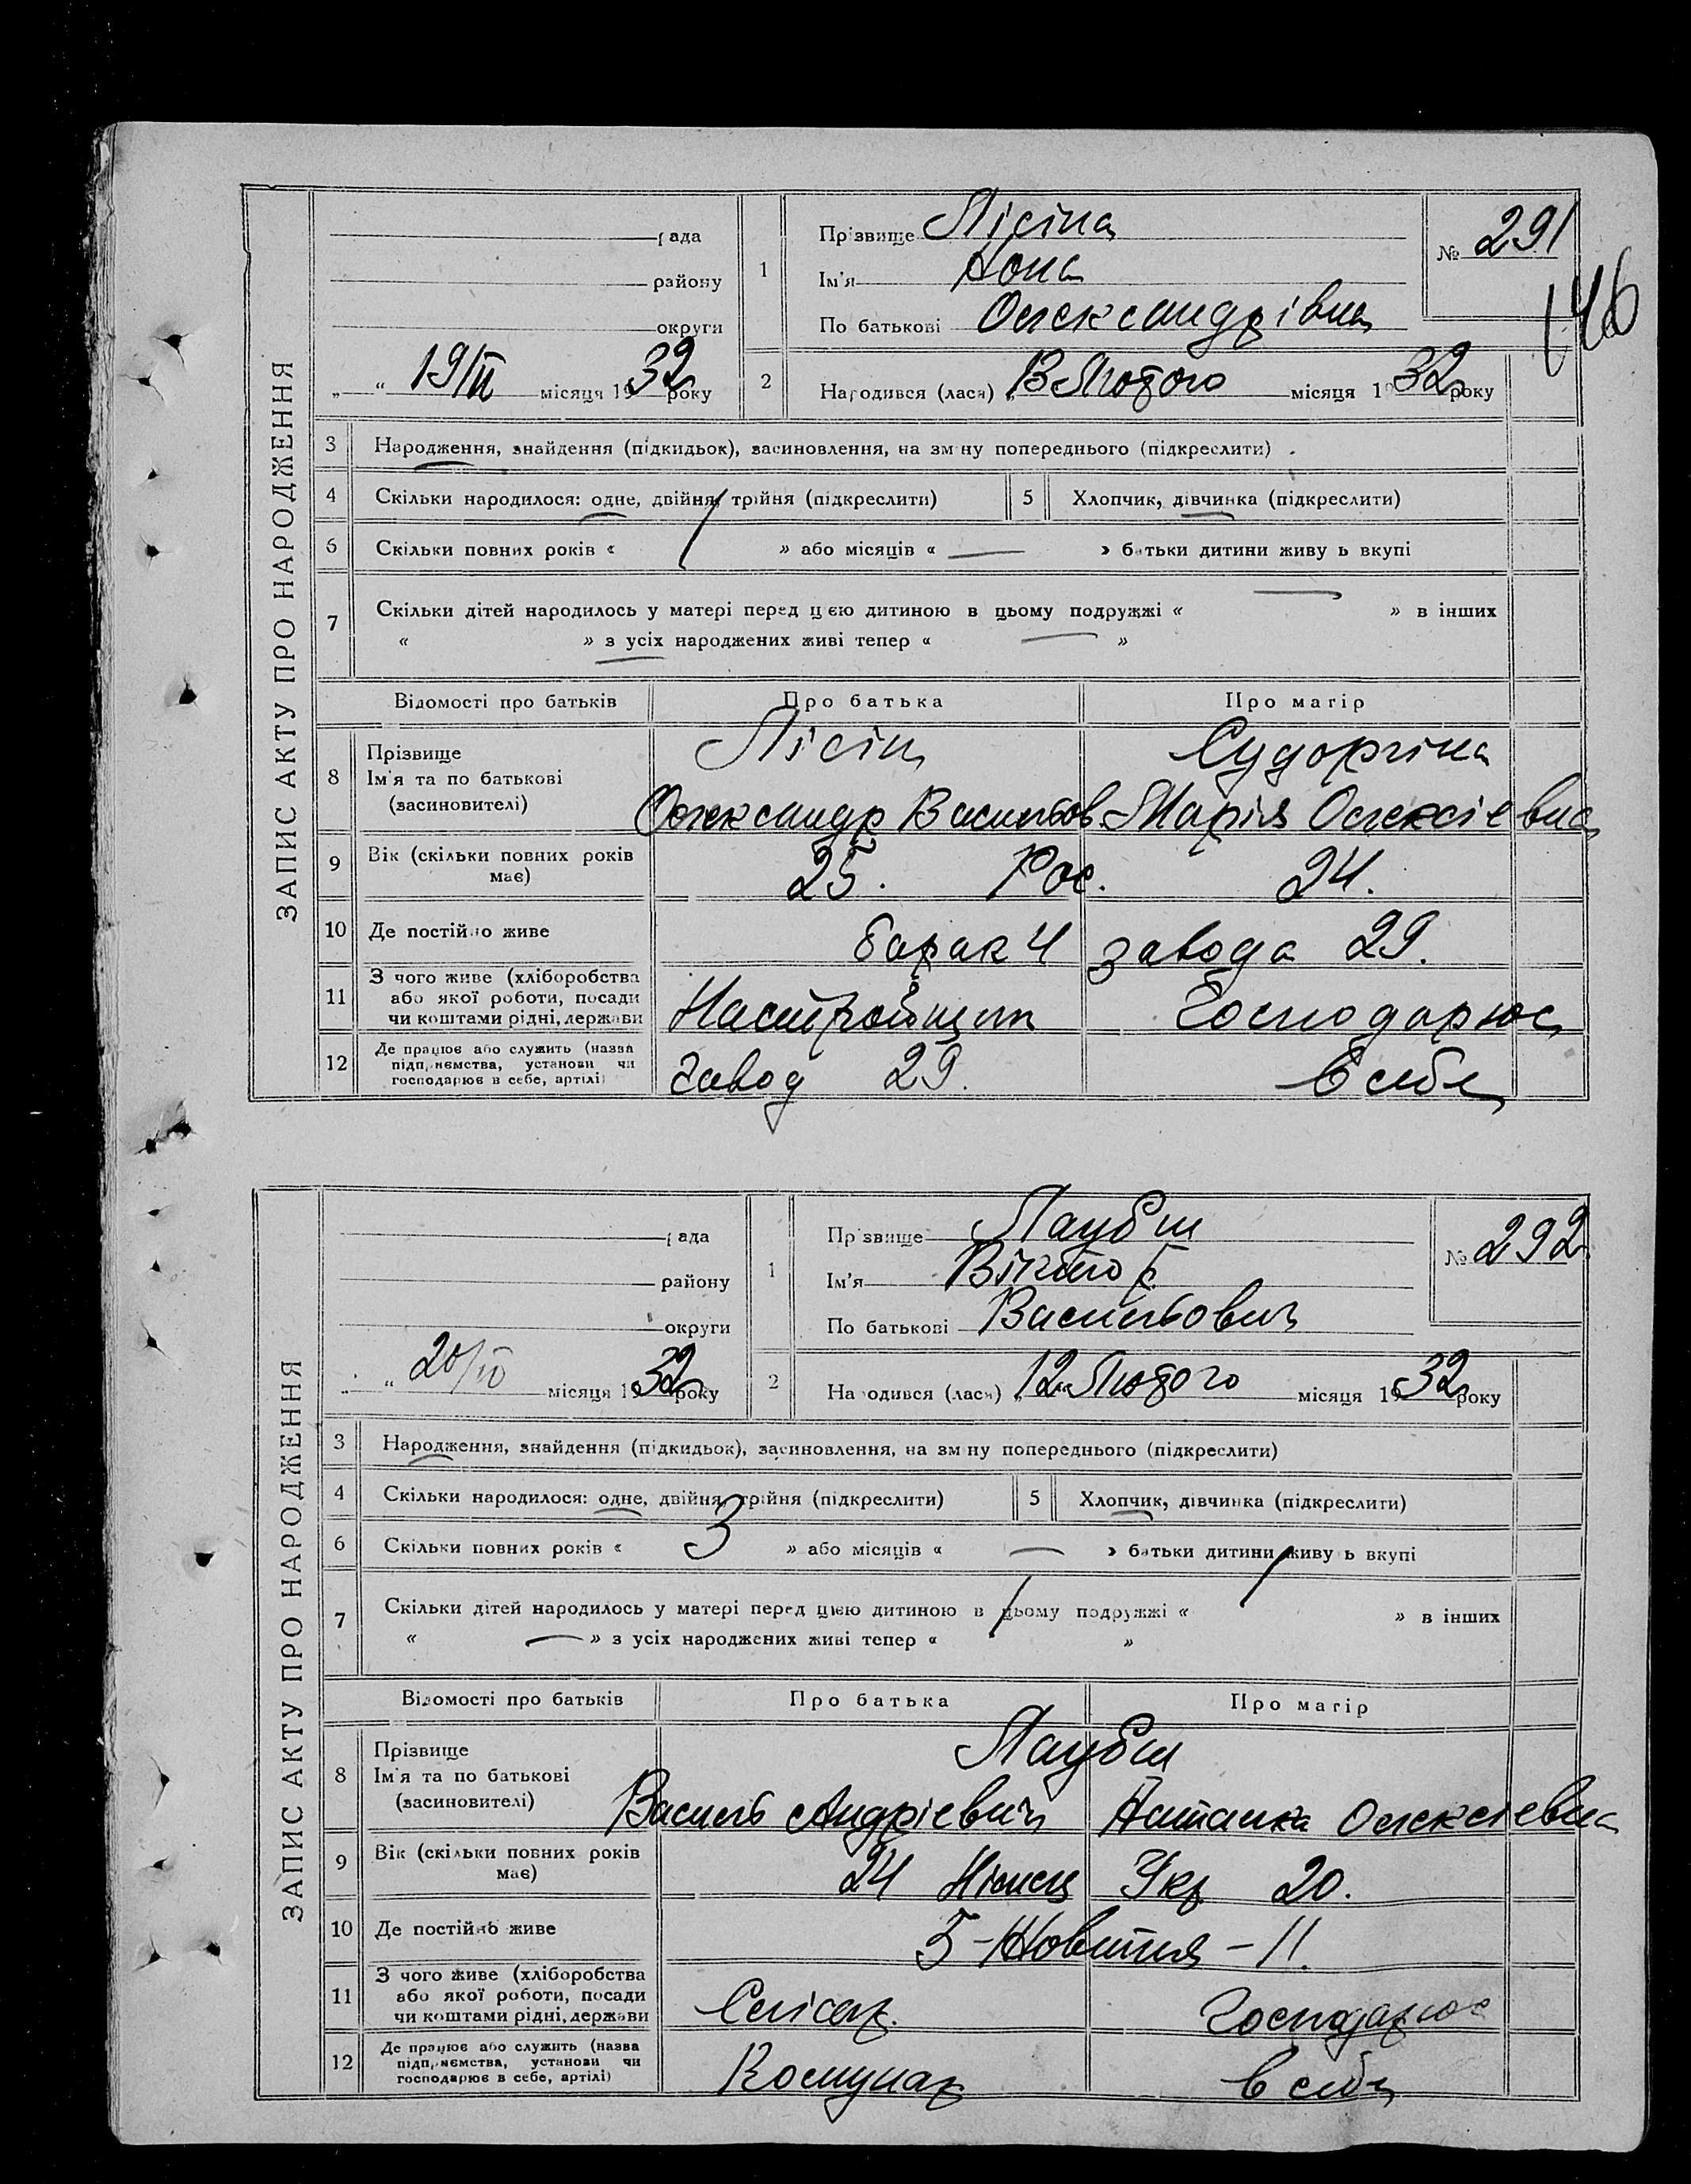 ЗАПИС АКТУ ПРО НАРОДЖЕННЯ
рада
району
округи
„ “ 19/II місяця 1932 року
1
Прізвище Лісіна
Ім'я Нона
По батькові Олександрівна
№ 291
146
2
Народився (лася) „ 13 Лютого місяця 1932 року
3 Народження, знайдення (підкидьок), засиновлення, на зміну попереднього (підкреслити)
4 Скільки народилося: одне, двійня, трійня (підкреслити) 5 Хлопчик, дівчинка (підкреслити)
6 Скільки повних років « 1 » або місяців « — » батьки дитини живуть вкупі
7 Скільки дітей народилось у матері перед цією дитиною в цьому подружжі « — » в інших
« » з усіх народжених живі тепер « — »
Відомості про батьків Про батька Про матір
8 Прізвище Лісін
Ім'я та по батькові
(засиновителі) Олександр Васильов Марія Олексієвна
9 Вік (скільки повних років має) 25. Рос. 24.
10 Де постійно живе барак 4 завода 29.
11 З чого живе (хліборобства
або якої роботи, посади
чи коштами рідні, держави Настройщик Господарює
12 Де працює або служить (назва
підприємства, установи чи
господарює в себе, артілі) Завод 29. в себе
ЗАПИС АКТУ ПРО НАРОДЖЕННЯ
рада
району
округи
„ “ 20/II місяця 1932 року
1
Прізвище Лаубш
Ім'я Віктор
По батькові Васильович
№ 292
2
Народився (лася) „ 12 Лютого місяця 1932 року
3 Народження, знайдення (підкидьок), засиновлення, на зміну попереднього (підкреслити)
4 Скільки народилося: одне, двійня, трійня (підкреслити) 5 Хлопчик, дівчинка (підкреслити)
6 Скільки повних років « 3 » або місяців « — » батьки дитини живуть вкупі
7 Скільки дітей народилось у матері перед цією дитиною в цьому подружжі « 1 » в інших
« — » з усіх народжених живі тепер « 1 »
Відомості про батьків Про батька Про матір
8 Прізвище Лаубш
Ім'я та по батькові
(засиновителі) Василь Андрієвич Наталка Олексієвна
9 Вік (скільки повних років має) 24 Німець Укр 20.
10 Де постійно живе 5-Жовтня – 11.
11 З чого живе (хліборобства
або якої роботи, посади
чи коштами рідні, держави Слісар. Господарює
12 Де працює або служить (назва
підприємства, установи чи
господарює в себе, артілі) Комунар в себе